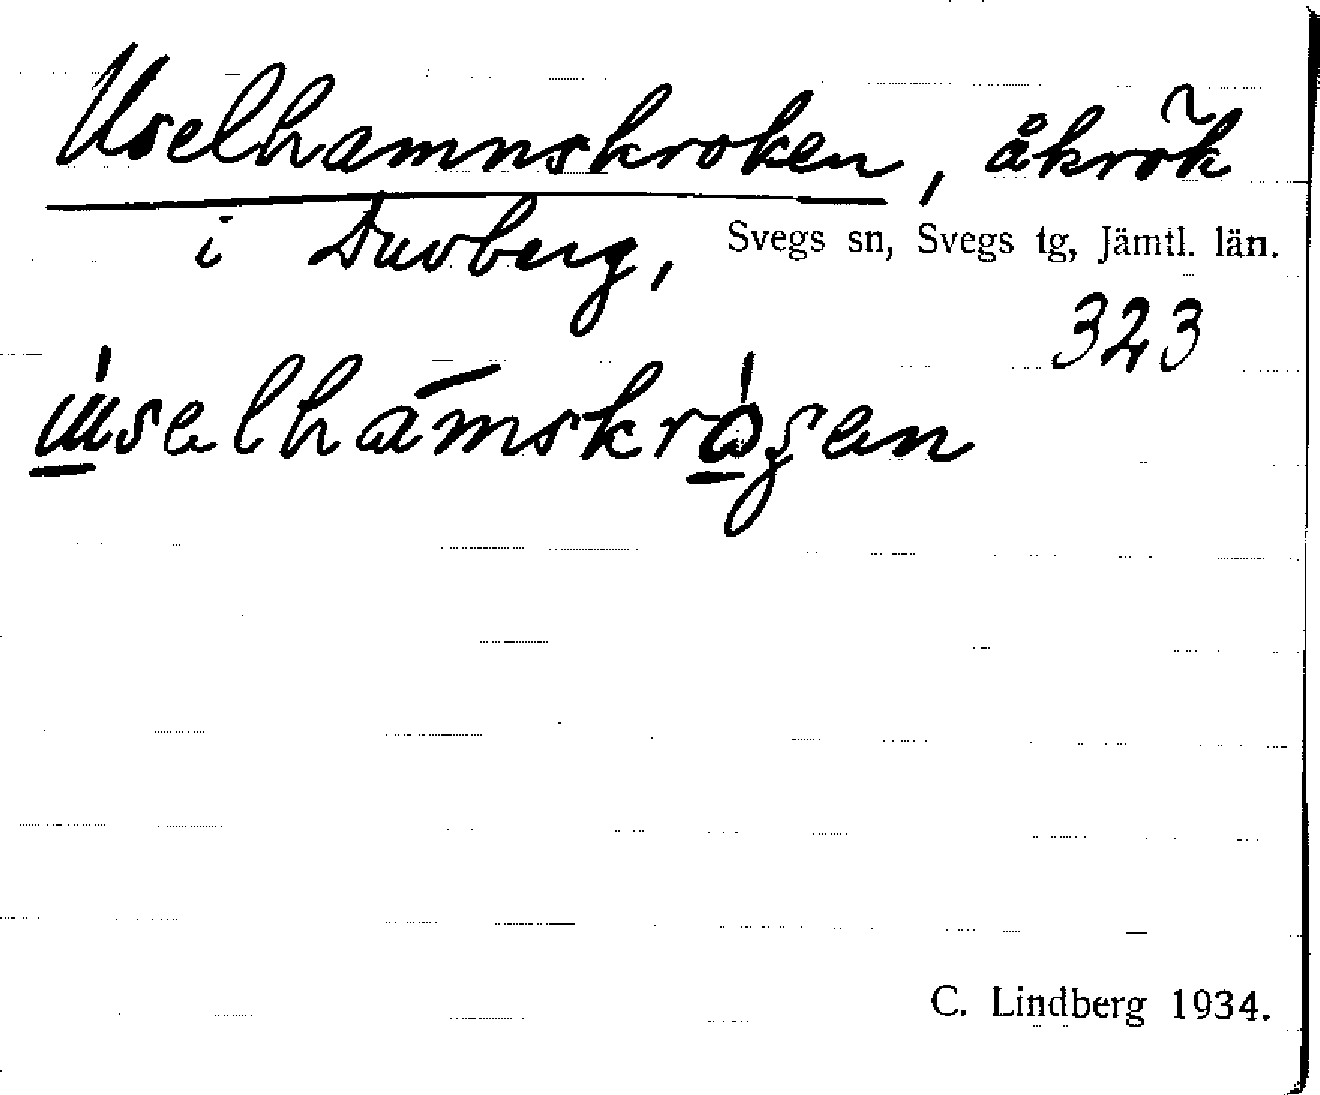 Uselhamnskroken, åkrök
i Duvberg, Svegs sn, Svegs tg, Jämtl. län.
323
C. Lindberg 1934.